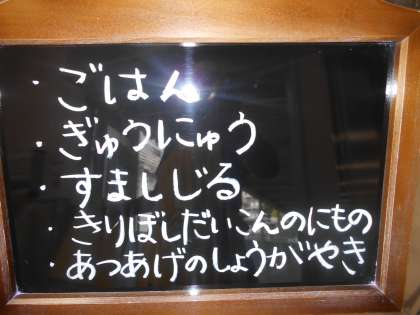 ・ごはん
・ぎゅうにゅう
・すましじる
・きりぼしだいこんのにもの
・あつあげのしょうがやき